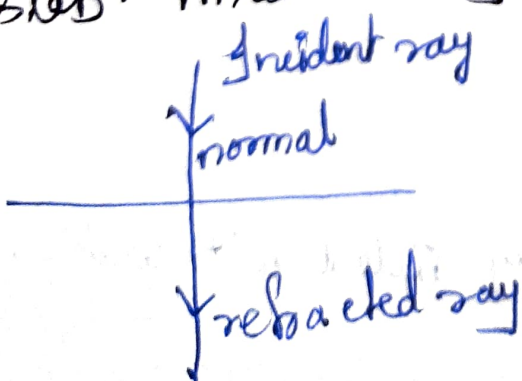 Incident ray
normal
refracted ray